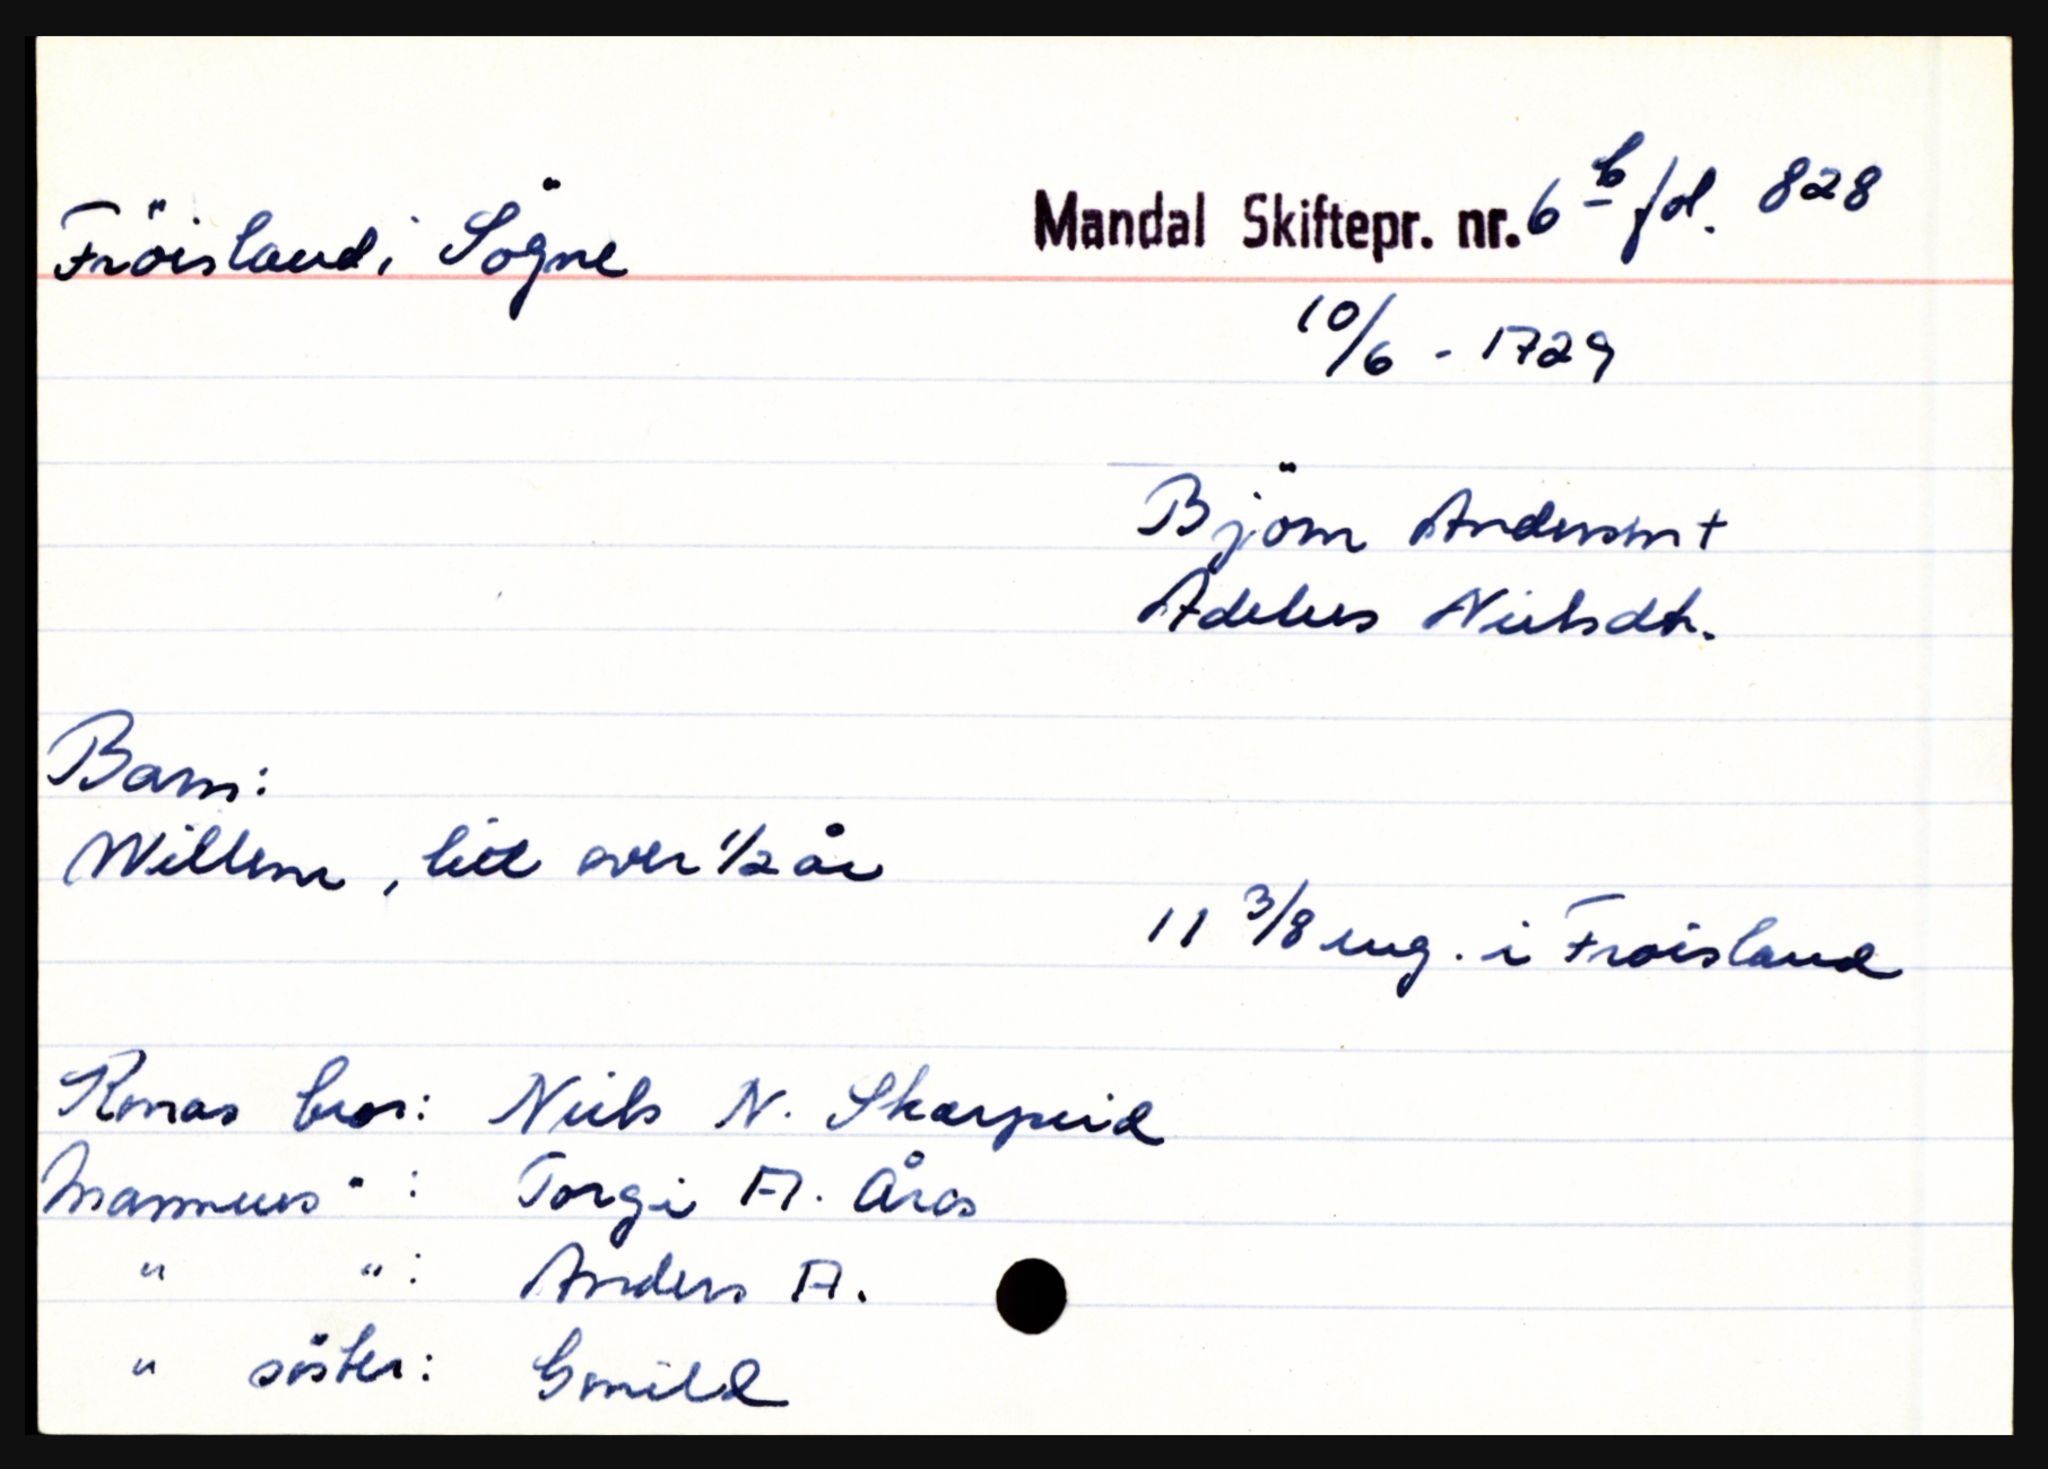 Fröisland i Sögne
Mandal Skiftepr. nr. 6 b fol. 828
10/6 - 1729
Björn Andersen +
Adelus Nielsdtr.
Barn:
Willem, litt over 1/2 år
11 3/8 eng. i Frøisland
Konas bror: Niels N. Skarpeid
Mannens " : Torgi A. Åros
" " : Anders A.
" söster: Gunild